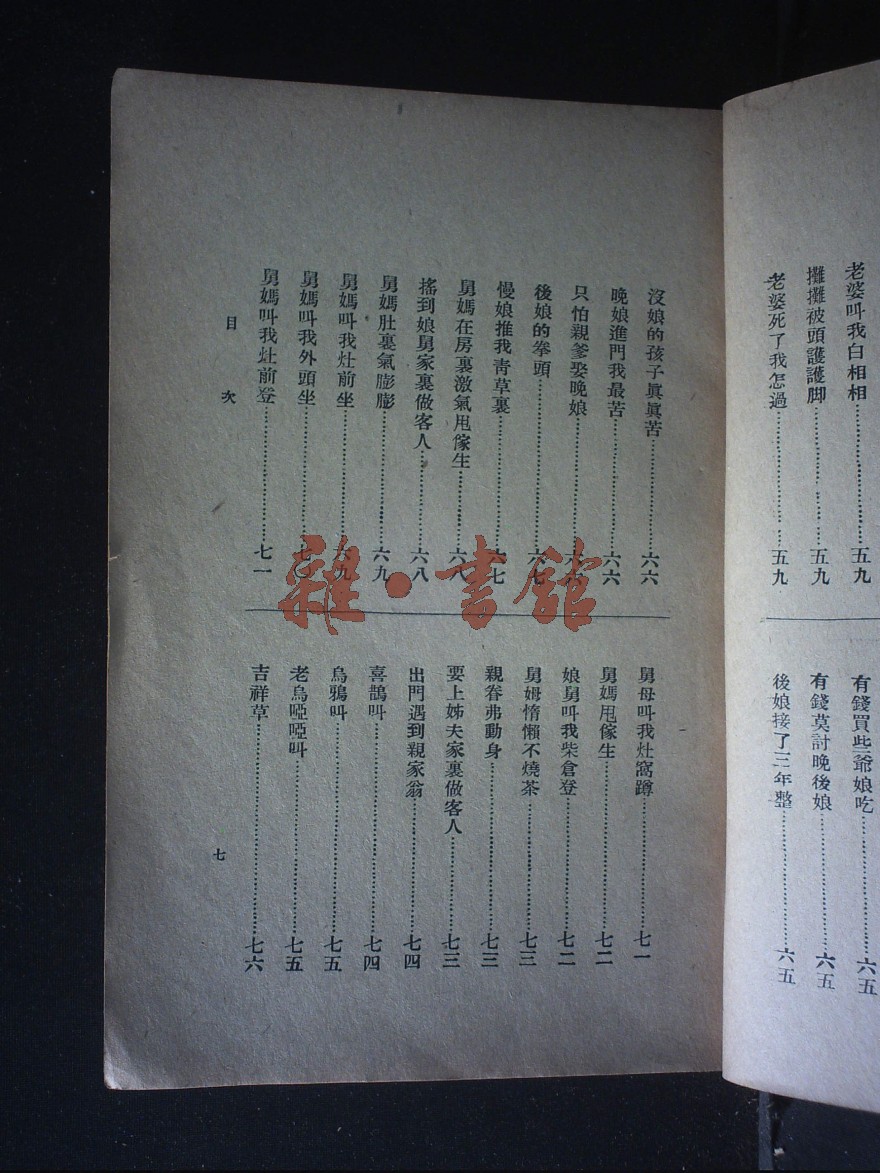 老婆叫我白相相……五九
攤攤被頭護護脚……五九
老婆死了我怎過……五九
有錢買些爺娘吃……六五
有錢莫討晚後娘……六五
後娘接了三年整……六五
沒娘的孩子眞眞苦……六六
晚娘進門我最苦……六六
只怕親爹娶晚娘……六六
後娘的拳頭……六七
慢娘推我靑草裏……六七
舅媽在房裏激氣甩傢生……六八
搖到娘舅家裏做客人……六八
舅媽肚裏氣膨膨……六九
舅媽叫我灶前坐……六九
舅媽叫我外頭坐……七〇
舅媽叫我灶前登……七一
舅母叫我灶窩蹲……七一
舅媽甩傢生……七二
娘舅叫我柴倉登……七二
舅姆惰懶不燒茶……七三
親眷弗動身……七三
要上姊夫家裏做客人……七三
出門遇到親家翁……七四
喜鵲叫……七四
烏鴉叫……七五
老烏啞啞叫……七五
吉祥草……七六
目次
七
雜·書館